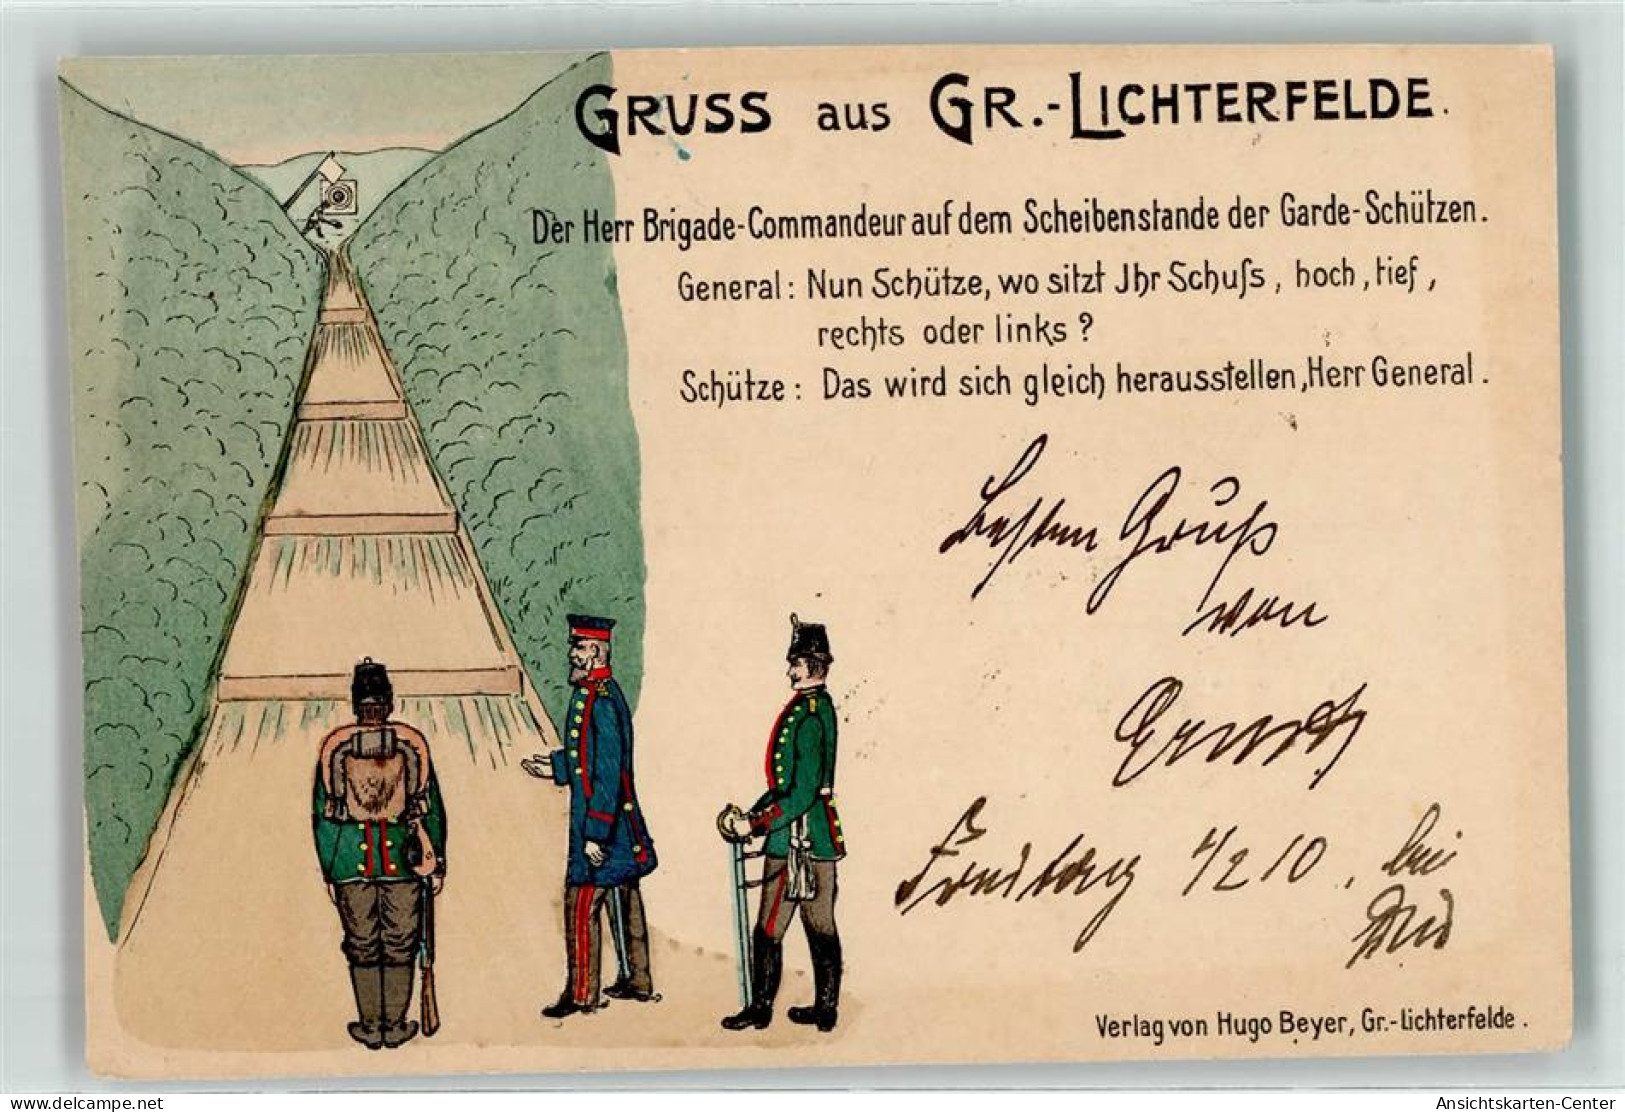 GRUSS aus GR.-LICHTERFELDE.
Der Herr Brigade-Commandeur auf dem Scheibenstande der Garde-Schützen.
General: Nun Schütze, wo sitzt Jhr Schuſs, hoch, tief,
rechts oder links?
Schütze: Das wird sich gleich herausstellen, Herr General.
Besten Gruß
von
Ernst
Freitag 4/2 10, bei
Verlag von Hugo Beyer, Gr.-Lichterfelde.
delcampe.net
Ansichtskarten-Center